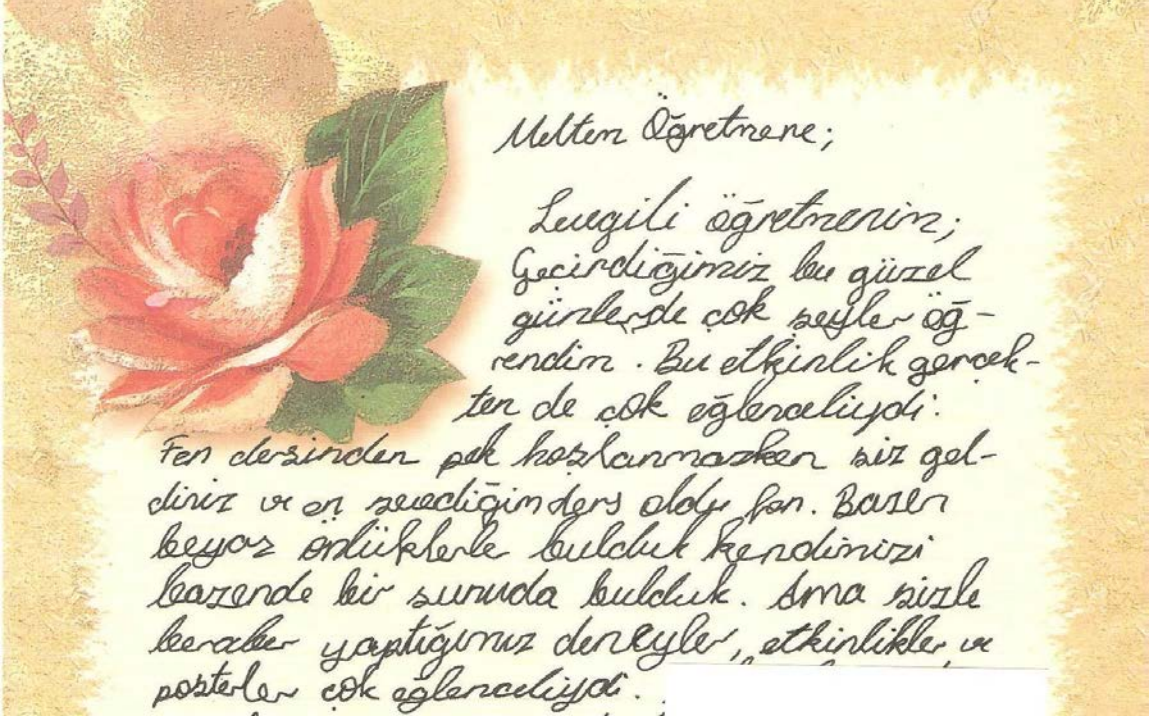 Meltem Öğretmene;
Sevgili öğretmenim;
Geçirdiğimiz bu güzel
günlerde çok şeyler öğ-
rendim. Bu etkinlik gerçek-
ten de çok eğlenceliydi.
Fen dersinden pek hoşlanmazken siz gel-
diniz ve en sevdiğim ders oldu fen. Bazen
beyaz önlüklerle bulduk kendimizi
bazende bir sunuda bulduk. Ama sizle
beraber yaptığımız deneyler, etkinlikler ve
posterler çok eğlenceliydi.